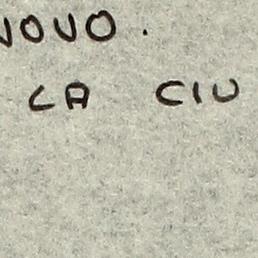 NOVO.
LA CIU